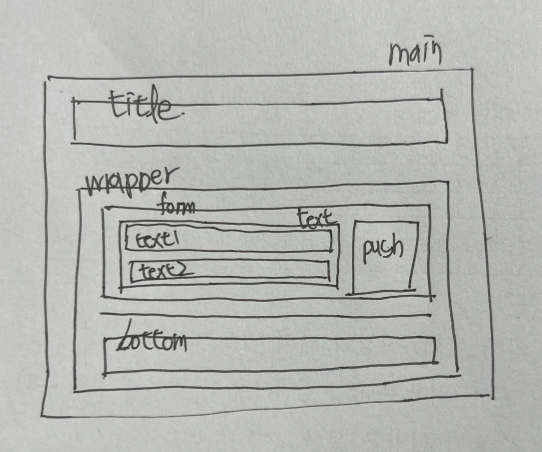 main
title
wrapper
form
text
text1
push
text2
bottom